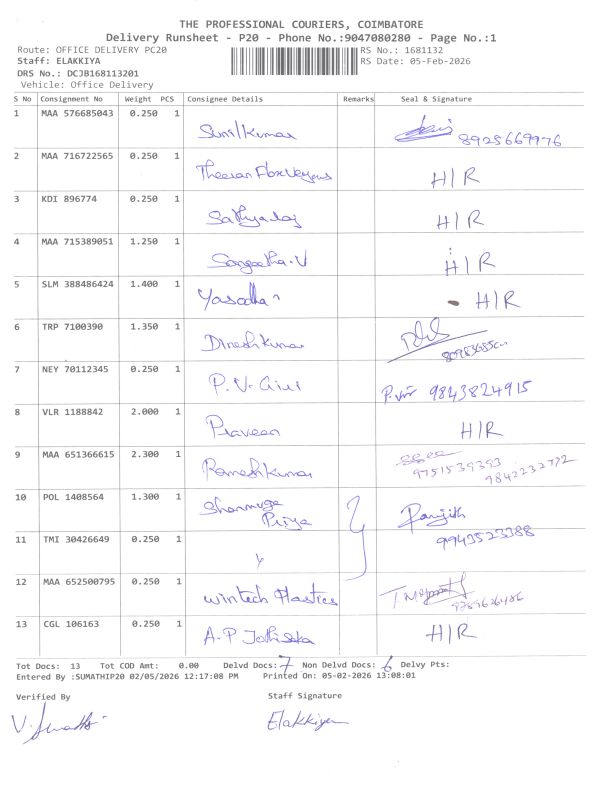 THE PROFESSIONAL COURIERS, COIMBATORE
Delivery Runsheet - P20 - Phone No.:9047080280 - Page No.:1
Route: OFFICE DELIVERY PC20
RS No.: 1681132
Staff: ELAKKIYA
RS Date: 05-Feb-2026
DRS No.: DCJB168113201
Vehicle: Office Delivery
S No Consignment No Weight PCS Consignee Details Remarks Seal & Signature
1 MAA 576685043 0.250 1 Sunilkumar 8925669976
2 MAA 716722565 0.250 1 H/R
3 KDI 896774 0.250 1 Sathyaraj H/R
4 MAA 715389051 1.250 1 Sangeetha.V H/R
5 SLM 388486424 1.400 1 Yasodha H/R
6 TRP 7100390 1.350 1 Dineshkumar
7 NEY 70112345 0.250 1 P.V. Giri 9843824915
8 VLR 1188842 2.000 1 Praveen H/R
9 MAA 651366615 2.300 1 Rameshkumar 9751539393 9842232772
10 POL 1408564 1.300 1 Shanmuga Priya Ranjith
9943523388
11 TMI 30426649 0.250 1
12 MAA 652500795 0.250 1 Wintech Plastics
13 CGL 106163 0.250 1 A.P H/R
Tot Docs: 13 Tot COD Amt: 0.00 Delvd Docs: 7 Non Delvd Docs: 6 Delvy Pts:
Entered By :SUMATHIP20 02/05/2026 12:17:08 PM Printed On: 05-02-2026 13:08:01
Verified By
Staff Signature
V. Sumathi
Elakkiya